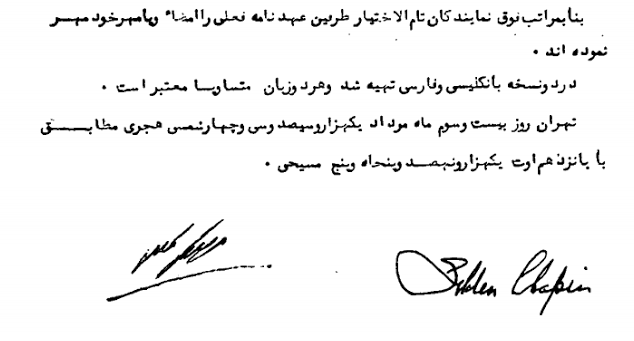 بنابمراتب فوق نمایندگان تام الاختیار طرفین عهد نامه فعلی را امضاء وبامهرخود مهر
نموده اند .
در دو نسخه بانگلیسی وفارسی تهیه شد وهر دو زبان متساویا معتبر است .
تهران روز بیست وسوم ماه مرداد یکهزاروسیصد وسی وچهارشمسی هجری مطابق
با پانزدهم اوت یکهزارونهصد وپنجاه وپنج مسیحی .
Selden Chapin